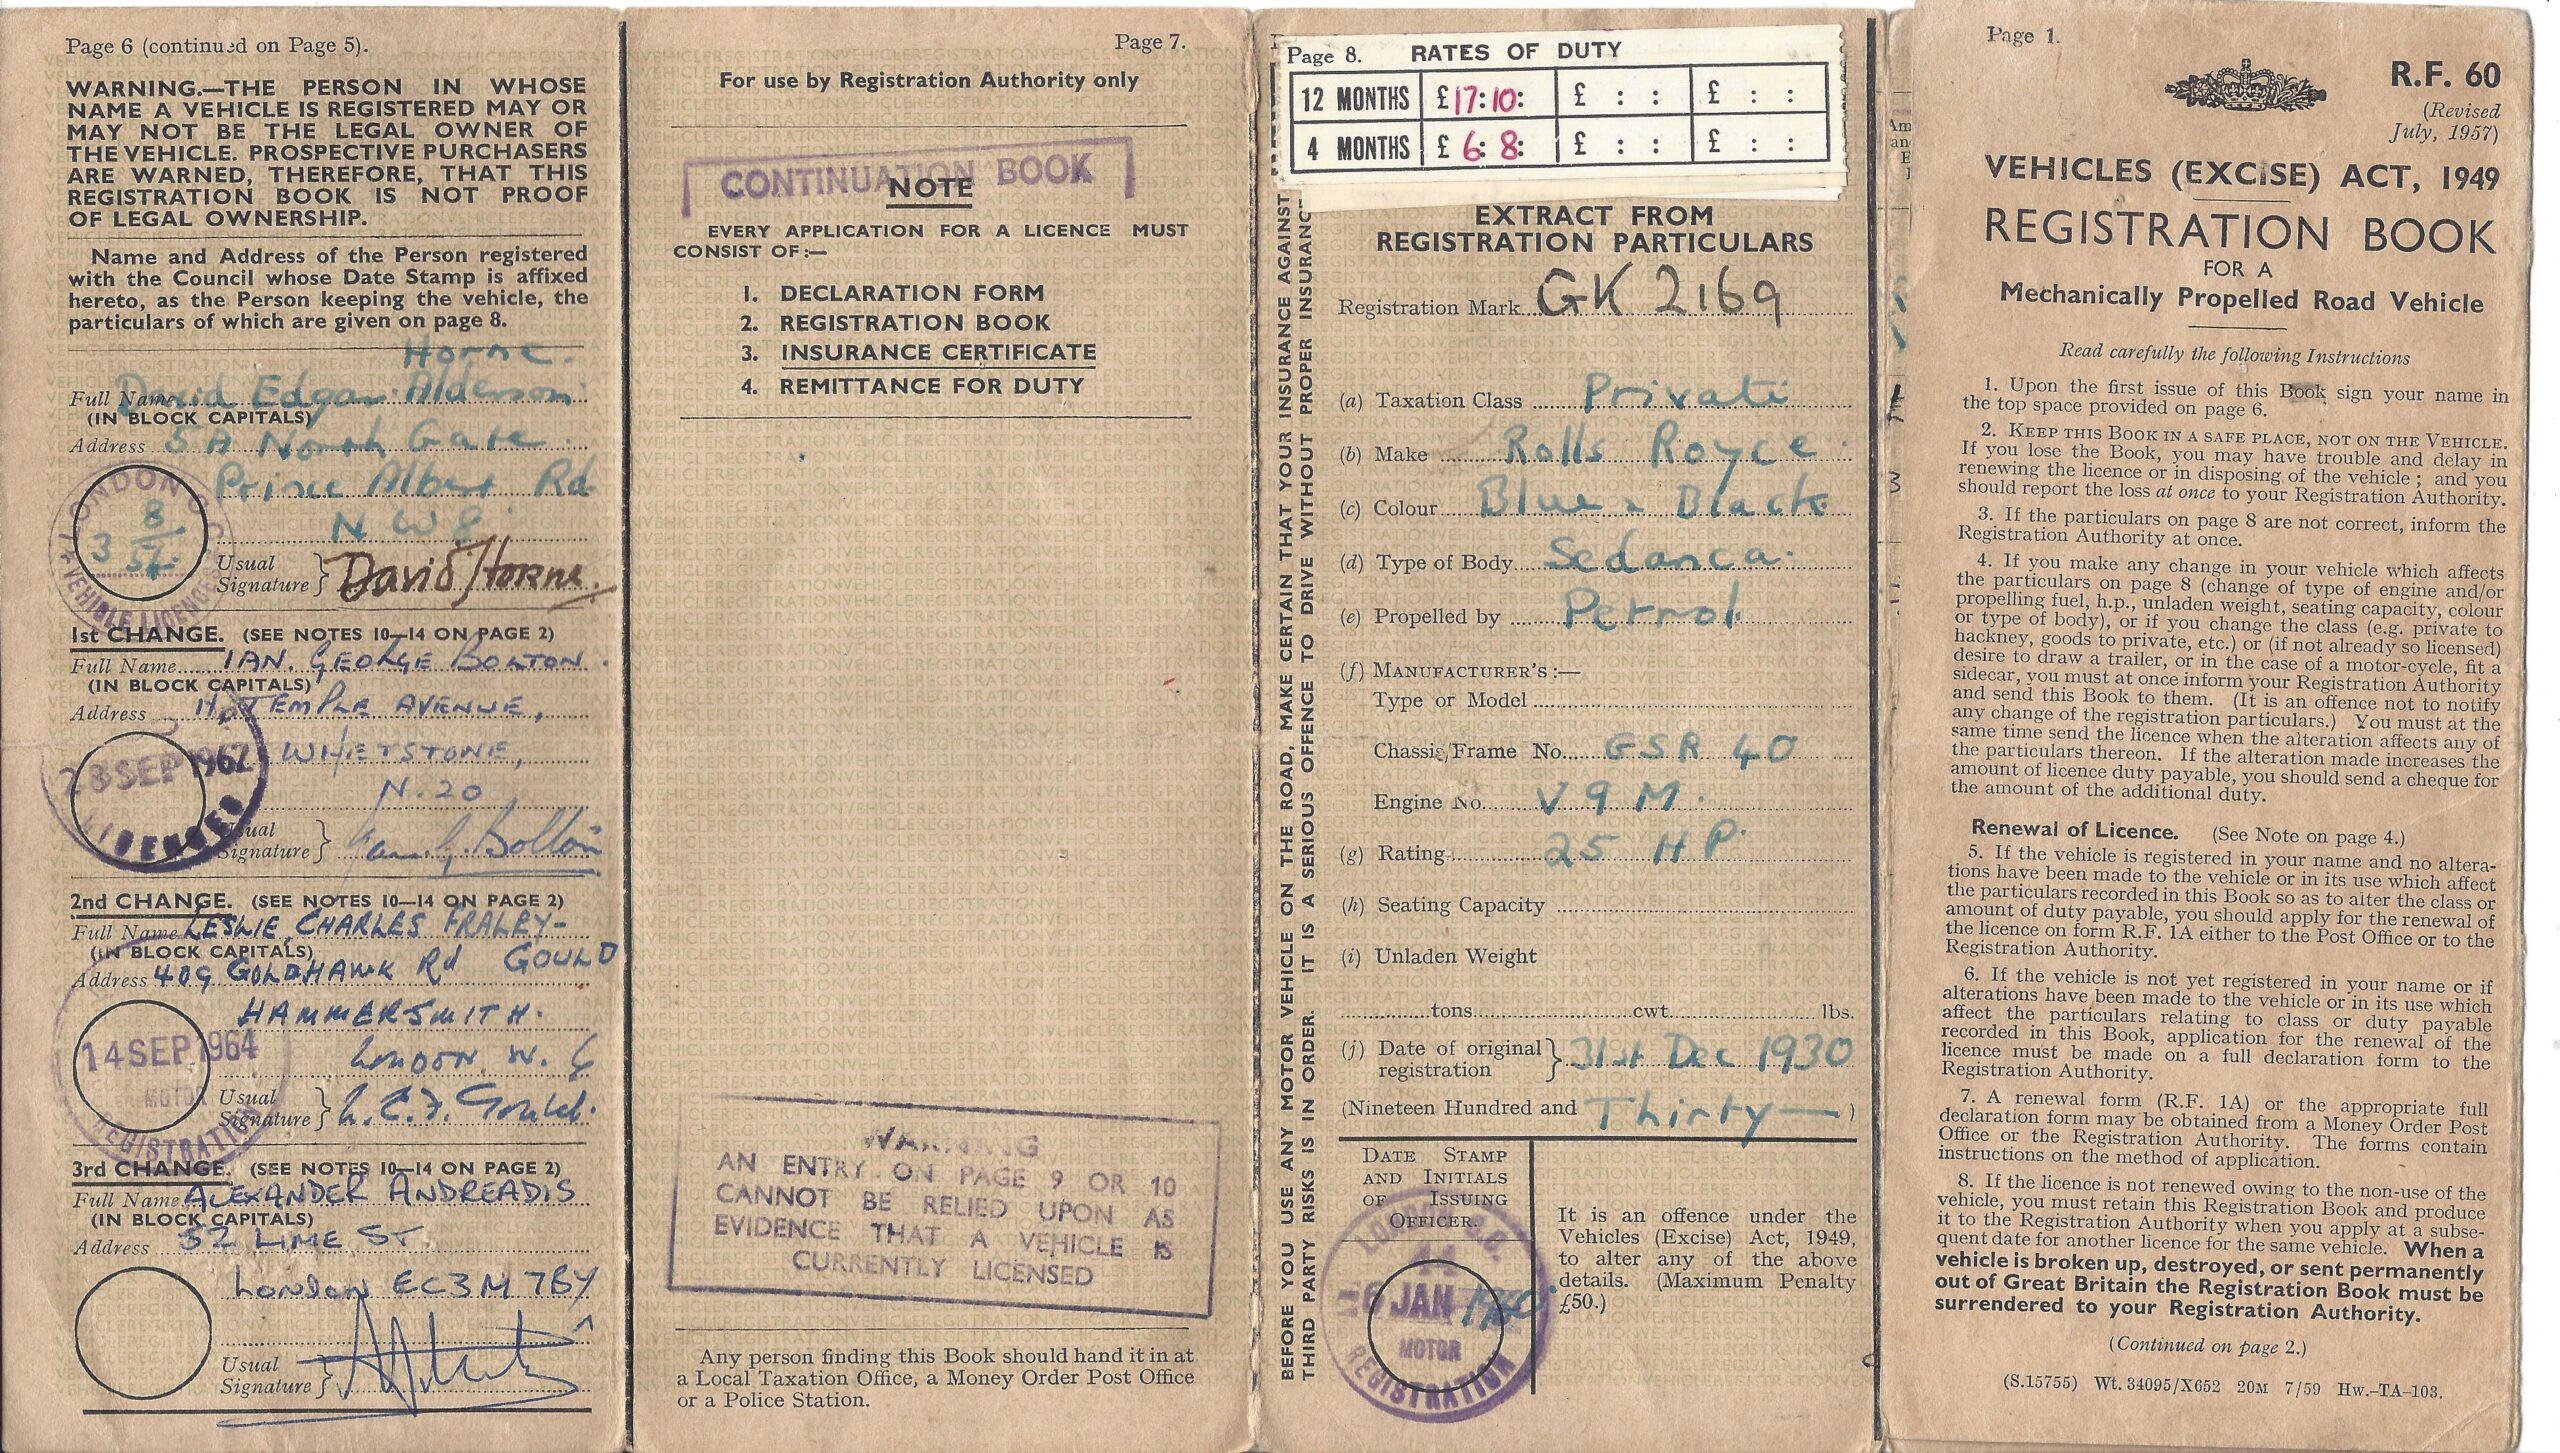 Page 6 (continued on Page 5).
WARNING.—THE PERSON IN WHOSE
NAME A VEHICLE IS REGISTERED MAY OR
MAY NOT BE THE LEGAL OWNER OF
THE VEHICLE. PROSPECTIVE PURCHASERS
ARE WARNED, THEREFORE, THAT THIS
REGISTRATION BOOK IS NOT PROOF
OF LEGAL OWNERSHIP.
Name and Address of the Person registered
with the Council whose Date Stamp is affixed
hereto, as the Person keeping the vehicle, the
particulars of which are given on page 8.
Horne.
Full Name David Edgar Alderson
(IN BLOCK CAPITALS)
Address 5A North Gate
Prince Albert Rd
N W 8
LONDON C.C.
3 8 54
VEHICLE LICENCE
Usual
Signature } David Horne.
1st CHANGE. (SEE NOTES 10—14 ON PAGE 2)
Full Name IAN. GEORGE BOLTON.
(IN BLOCK CAPITALS)
Address 11, TEMPLE AVENUE,
WHETSTONE,
N. 20
28 SEP 1962
LICENCES
Usual
Signature } Ian. G. Bolton
2nd CHANGE. (SEE NOTES 10—14 ON PAGE 2)
Full Name LESLIE CHARLES FRALEY-
(IN BLOCK CAPITALS) GOULD
Address 409 GOLDHAWK Rd
HAMMERSMITH.
LONDON. W. 6
14 SEP 1964
MOTOR
REGISTRATION
Usual
Signature } L. C. F. Gould.
3rd CHANGE. (SEE NOTES 10—14 ON PAGE 2)
Full Name ALEXANDER ANDREADIS
(IN BLOCK CAPITALS)
Address 32 LIME ST
London EC3M 7BY
Usual
Signature }
Page 7.
For use by Registration Authority only
CONTINUATION BOOK
NOTE
EVERY APPLICATION FOR A LICENCE MUST
CONSIST OF :—
1. DECLARATION FORM
2. REGISTRATION BOOK
3. INSURANCE CERTIFICATE
4. REMITTANCE FOR DUTY
WARNING
AN ENTRY ON PAGE 9 OR 10
CANNOT BE RELIED UPON AS
EVIDENCE THAT A VEHICLE IS
CURRENTLY LICENSED
Any person finding this Book should hand it in at
a Local Taxation Office, a Money Order Post Office
or a Police Station.
BEFORE YOU USE ANY MOTOR VEHICLE ON THE ROAD, MAKE CERTAIN THAT YOUR INSURANCE AGAINST
THIRD PARTY RISKS IS IN ORDER. IT IS A SERIOUS OFFENCE TO DRIVE WITHOUT PROPER INSURANCE
Page 8. RATES OF DUTY
12 MONTHS £17:10: £ : : £ : :
4 MONTHS £ 6: 8: £ : : £ : :
EXTRACT FROM
REGISTRATION PARTICULARS
Registration Mark GK 2169
(a) Taxation Class Private
(b) Make Rolls Royce
(c) Colour Blue & Black
(d) Type of Body Sedanca
(e) Propelled by Petrol
(f) MANUFACTURER'S :—
Type or Model
Chassis/Frame No. GSR 40
Engine No. V 9 M.
(g) Rating 25 H P.
(h) Seating Capacity
(i) Unladen Weight
tons cwt. lbs.
(j) Date of original
registration } 31st Dec 1930
(Nineteen Hundred and Thirty — )
DATE STAMP
AND INITIALS
OF ISSUING
OFFICER.
6 JAN 1960
MOTOR
REGISTRATION
It is an offence under the
Vehicles (Excise) Act, 1949,
to alter any of the above
details. (Maximum Penalty
£50.)
Page 1.
R.F. 60
(Revised
July, 1957)
VEHICLES (EXCISE) ACT, 1949
REGISTRATION BOOK
FOR A
Mechanically Propelled Road Vehicle
Read carefully the following Instructions
1. Upon the first issue of this Book sign your name in
the top space provided on page 6.
2. KEEP THIS BOOK IN A SAFE PLACE, NOT ON THE VEHICLE.
If you lose the Book, you may have trouble and delay in
renewing the licence or in disposing of the vehicle ; and you
should report the loss at once to your Registration Authority.
3. If the particulars on page 8 are not correct, inform the
Registration Authority at once.
4. If you make any change in your vehicle which affects
the particulars on page 8 (change of type of engine and/or
propelling fuel, h.p., unladen weight, seating capacity, colour
or type of body), or if you change the class (e.g. private to
hackney, goods to private, etc.) or (if not already so licensed)
desire to draw a trailer, or in the case of a motor-cycle, fit a
sidecar, you must at once inform your Registration Authority
and send this Book to them. (It is an offence not to notify
any change of the registration particulars.) You must at the
same time send the licence when the alteration affects any of
the particulars thereon. If the alteration made increases the
amount of licence duty payable, you should send a cheque for
the amount of the additional duty.
Renewal of Licence. (See Note on page 4.)
5. If the vehicle is registered in your name and no altera-
tions have been made to the vehicle or in its use which affect
the particulars recorded in this Book so as to alter the class or
amount of duty payable, you should apply for the renewal of
the licence on form R.F. 1A either to the Post Office or to the
Registration Authority.
6. If the vehicle is not yet registered in your name or if
alterations have been made to the vehicle or in its use which
affect the particulars relating to class or duty payable
recorded in this Book, application for the renewal of the
licence must be made on a full declaration form to the
Registration Authority.
7. A renewal form (R.F. 1A) or the appropriate full
declaration form may be obtained from a Money Order Post
Office or the Registration Authority. The forms contain
instructions on the method of application.
8. If the licence is not renewed owing to the non-use of the
vehicle, you must retain this Registration Book and produce
it to the Registration Authority when you apply at a subse-
quent date for another licence for the same vehicle. When a
vehicle is broken up, destroyed, or sent permanently
out of Great Britain the Registration Book must be
surrendered to your Registration Authority.
(Continued on page 2.)
(S.15755) Wt. 34095/X652 20M 7/59 Hw.–TA–103.